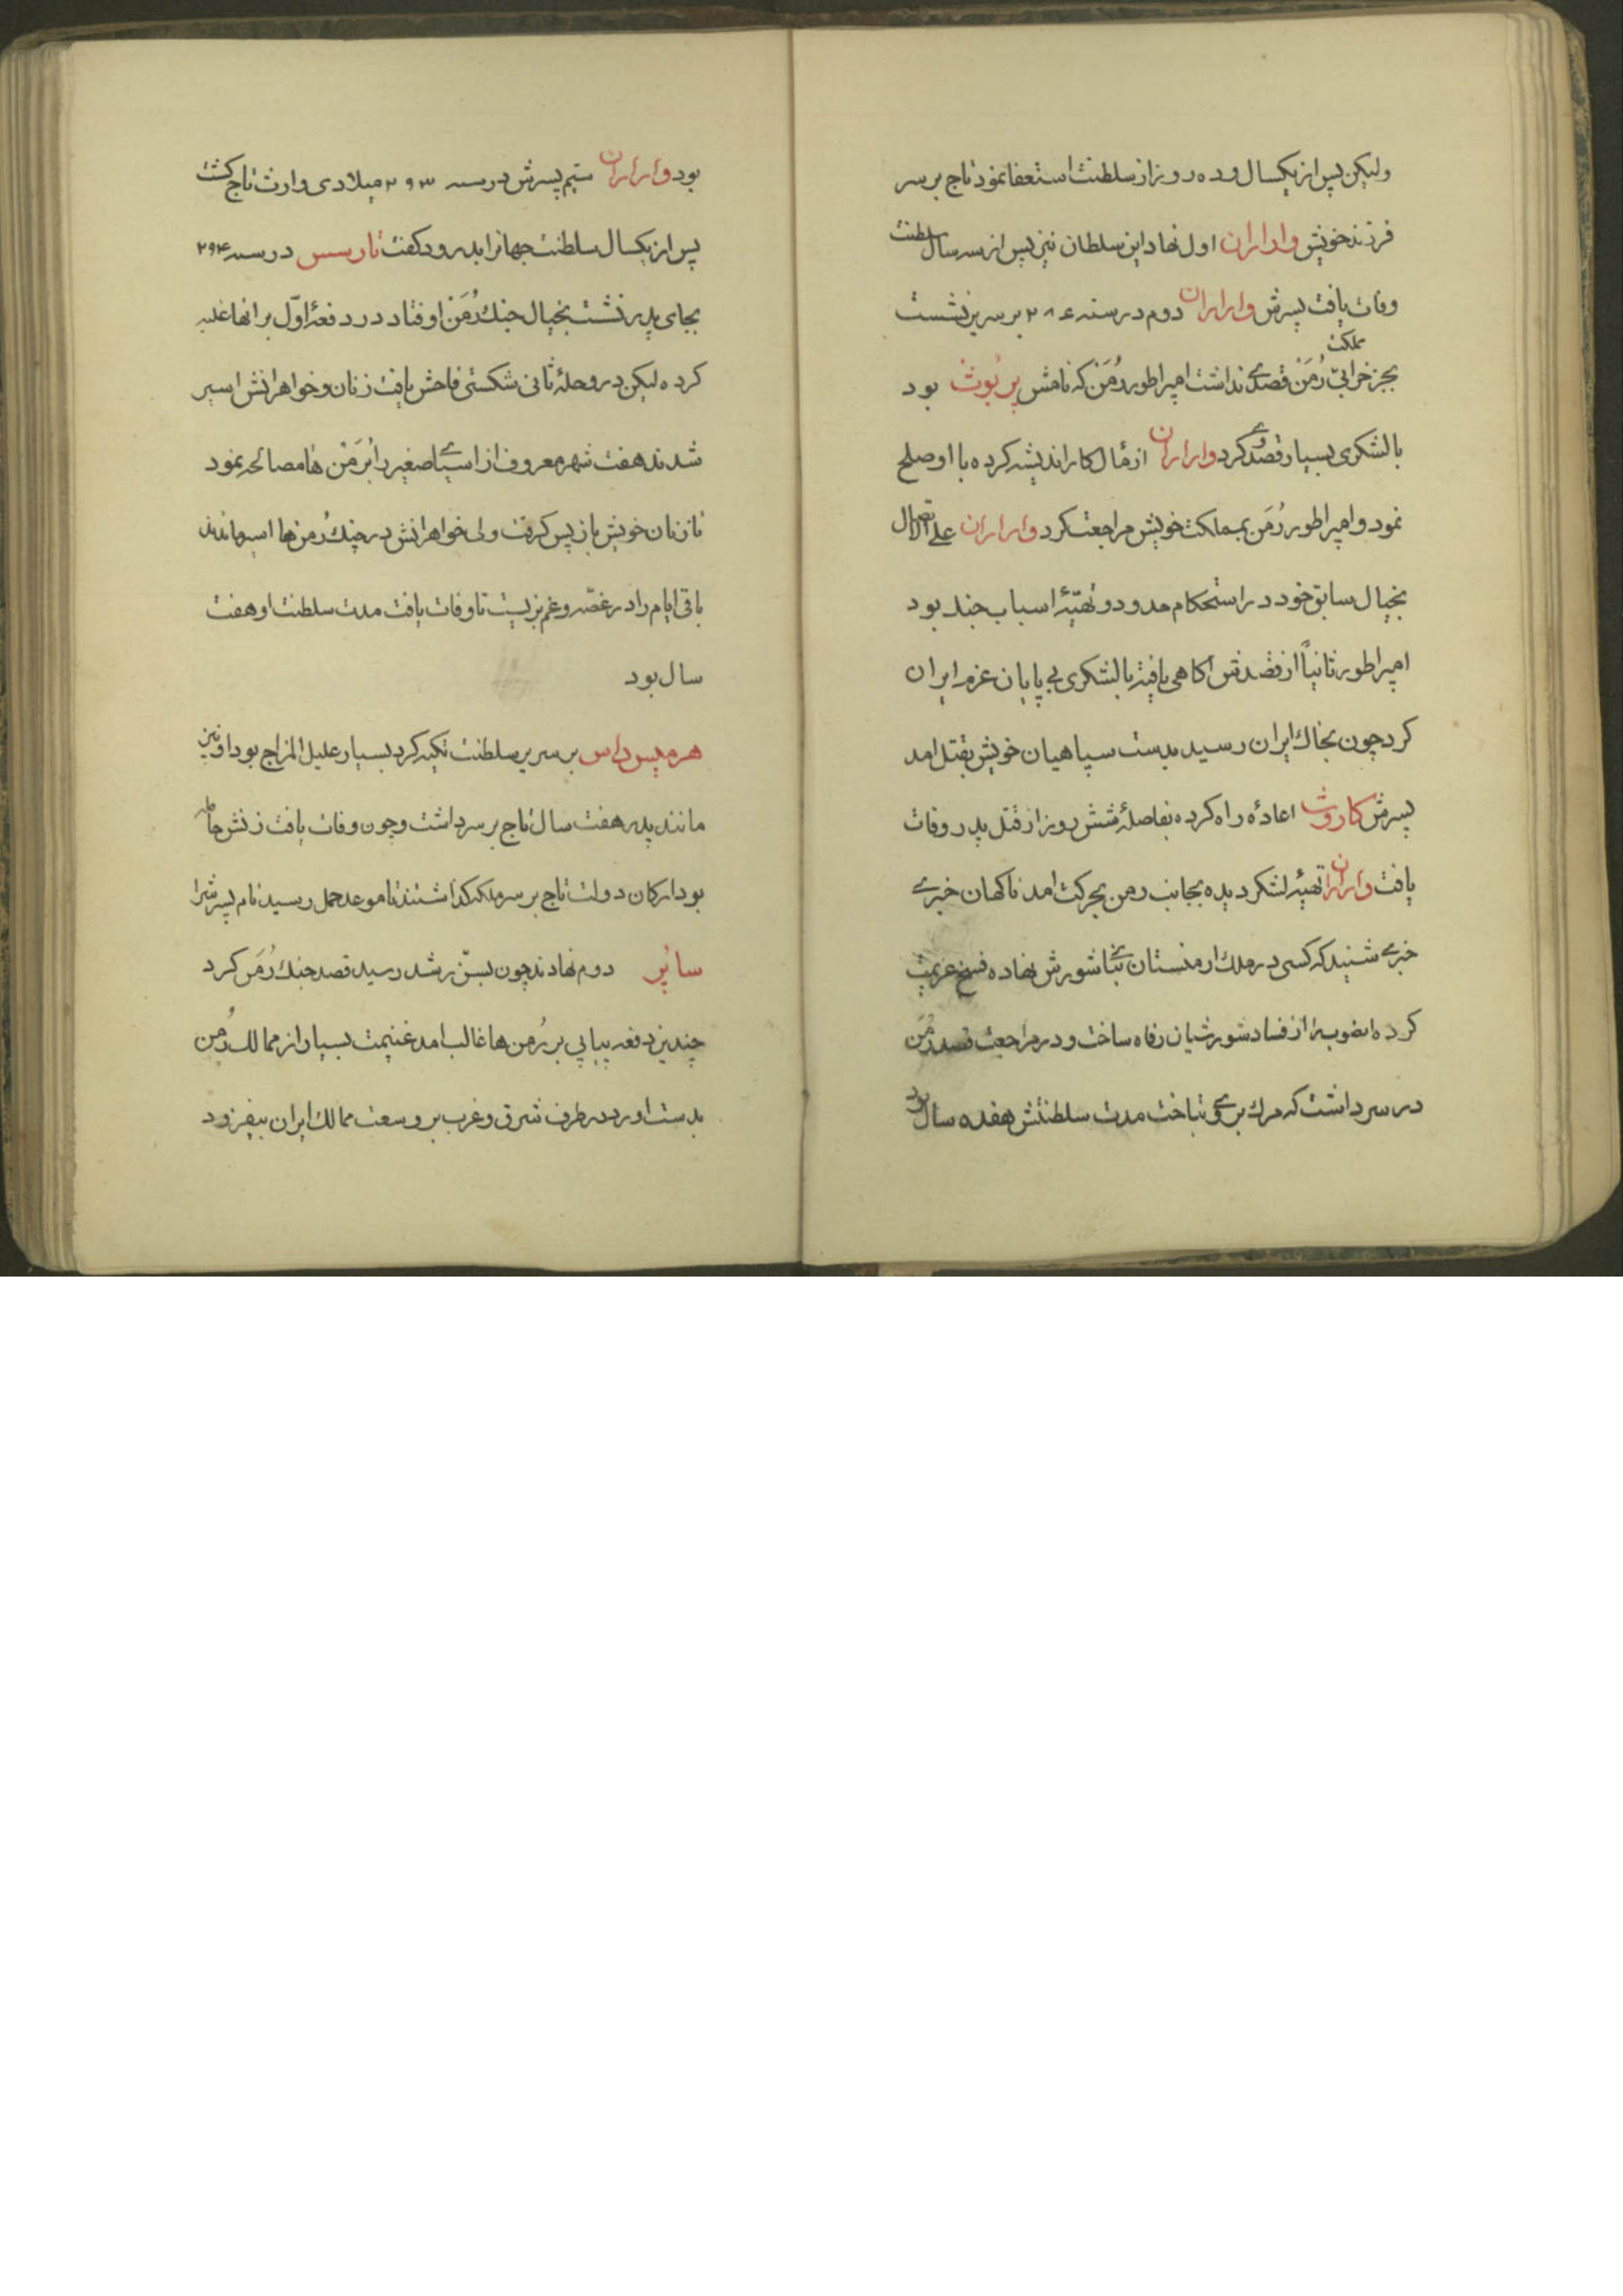 ولیکن پس از یکسال و ده روز از سلطنت استعفا نمود تاج بر سر
فرزند خویش واراران اول نهاد این سلطان نیز پس از سه سال سلطنت
وفات یافت پسرش واراران دوم در سنه ۲۸۴ بر سریر نشست
بجز خرابی مملکت رُمَنْ قصدی نداشت امپراطور رُمَنْ که نامش پربُوث بود
با لشکری بسیار قصد وی کرد واراران از مآل کار اندیشه کرده با او صلح
نمود و امپراطور رُمَن بمملکت خویش مراجعت کرد واراران علی الاتصال
بخیال سابق خود در استحکام حدود و تهیّهٔ اسباب جند بود
امپراطور ثانیاً از قصدش آکاهی یافته با لشکری بی پایان عزم ایران
کرد چون بخاک ایران رسید بدست سپاهیان خویش بقتل امد
پسرش کاروث اعادهٔ راه کرده بفاصلهٔ شش روز از قتل پدر وفات
یافت واراران تهیهٔ لشکر دیده بجانب رمن بحرکت امد ناکهان خبری
خبری شنید که کسی در ملک ارمنستان بنای شورش نهاده فسخ عزیمت
کرده انصوب را از فساد شورشیان رفاه ساخت و در مراجعت قصد رُمَن
در سر داشت که مرک بر وی بتاخت مدت سلطنتش هفده سال بود
بود واراران سیم پسرش در سنه ۲۹۳ میلادی وارث تاج کشت
پس از یکسال سلطنت جهانرا بدرود کفت نارسس در سنه ۲۹۴
بجای پدر نشست بخیال جنک رُمَنْ اوفتاد در دفعهٔ اوّل بر انها غلبه
کرده لیکن در وحلهٔ ثانی شکستی فاحش یافت زنان و خواهرانش اسیر
شدند هفت شهر معروف از اسیای صغیر را بُرمَنْ ها مصالحه نمود
تا زنان خویش باز پس کرفت ولی خواهرانش در جنک رُمن ها اسیر ماندند
باقی ایام را در غصّه و غم بزیست تا وفات یافت مدت سلطنت او هفت
سال بود
هرمیس داس بر سریر سلطنت تکیه کرد بسیار علیل المزاج بود او نیز
مانند پدر هفت سال تاج بر سر داشت و چون وفات یافت زنش حامله
بود ارکان دولت تاج بر سر ملکه کذاشتند تا موعد حمل رسید نام پسرش را
ساپُر دوم نهادند چون بسنّ رشد رسید قصد جنک رُمَن کرد
چندین دفعه پیاپی بر رُمن ها غالب امد غنیمت بسیار از ممالک رُمن
بدست اورد در طرف شرق و غرب بر وسعت ممالک ایران بیفزود